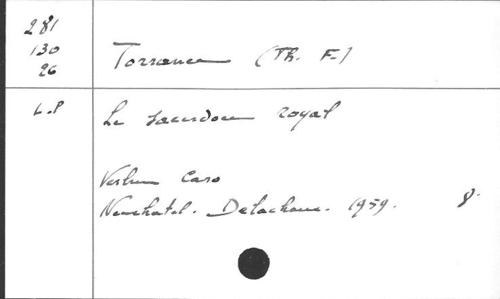 281
130
26
Torrance (Th. F.)
L.P
Le sacerdoce royal
Verbum Caro
Neuchatel. Delachaux. 1959. 8.